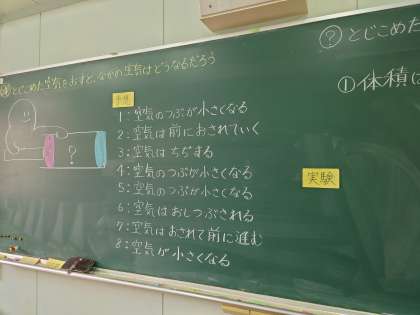 とじこめた空気をおすと、なかの空気はどうなるだろう
予想
1:空気のつぶが小さくなる
2:空気は前におされていく
3:空気はちぢまる
4:空気のつぶが小さくなる
5:空気のつぶが小さくなる
6:空気はおしつぶされる
7:空気はおされて前に進む
8:空気が小さくなる
?
実験
? とじこめた
① 体積は